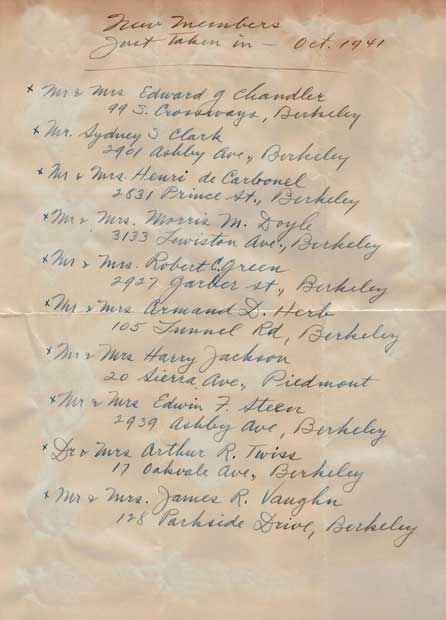 New Members
Just Taken in - Oct. 1941
x Mr & Mrs Edward J Chandler
99 S. Crossways, Berkeley
x Mr. Sydney S Clark
2901 Ashby Ave., Berkeley
x Mr & Mrs. Henri de Carbonel
2831 Prince St., Berkeley
x Mr & Mrs. Morris M. Doyle
3133 Lewiston Ave., Berkeley
x Mr & Mrs. Robert C. Green
2927 Garber st., Berkeley
x Mr & Mrs Armand D. Herb
105 Tunnel Rd, Berkeley
x Mr & Mrs Harry Jackson
20 Sierra Ave., Piedmont
x Mr & Mrs Edwin F. Steen
2939 Ashby Ave, Berkeley
x Dr & Mrs Arthur R. Twiss
17 Oakvale Ave., Berkeley
x Mr & Mrs. James R. Vaughn
128 Parkside Drive, Berkeley